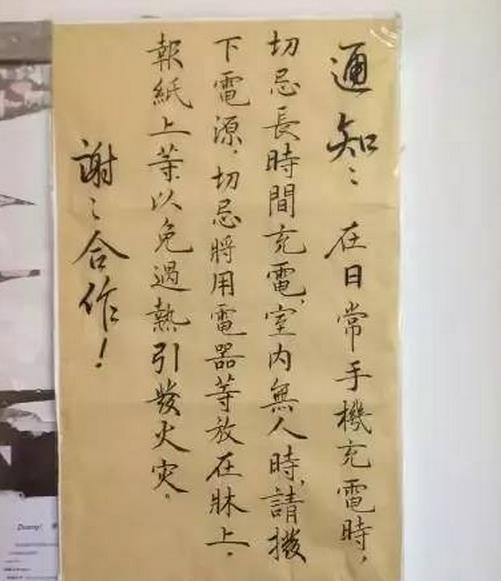 通知:在日常手機充電時,
切忌長時間充電,室内無人時,請撥
下電源,切忌將用電器等放在牀上,
報紙上等以免過熱引發火灾。
謝:合作!